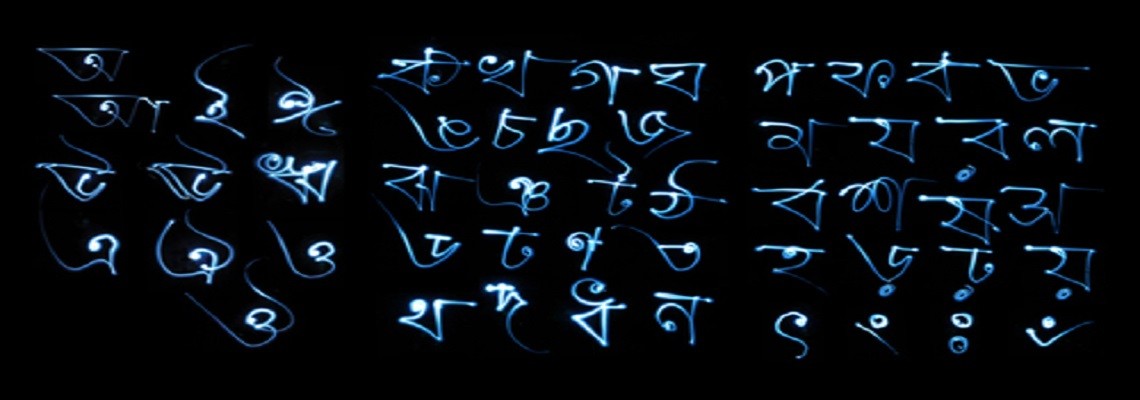 অ
আ ই ঈ
উ ঊ ঋ
এ ঐ ও
ঔ
ক খ গ ঘ
ঙ চ ছ জ
ঝ ঞ ট ঠ
ড ঢ ণ ত
থ দ ধ ন
প ফ ব ভ
ম য র ল
ব শ ষ স
হ ড় ঢ় য়
ৎ ং ঃ ঁ